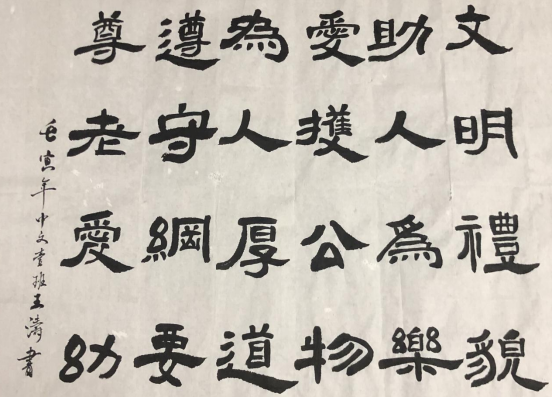 文明禮貌
助人為樂
愛獲公物
為人厚道
遵守綱要
尊老愛幼
壬寅年中文壹班王濤書